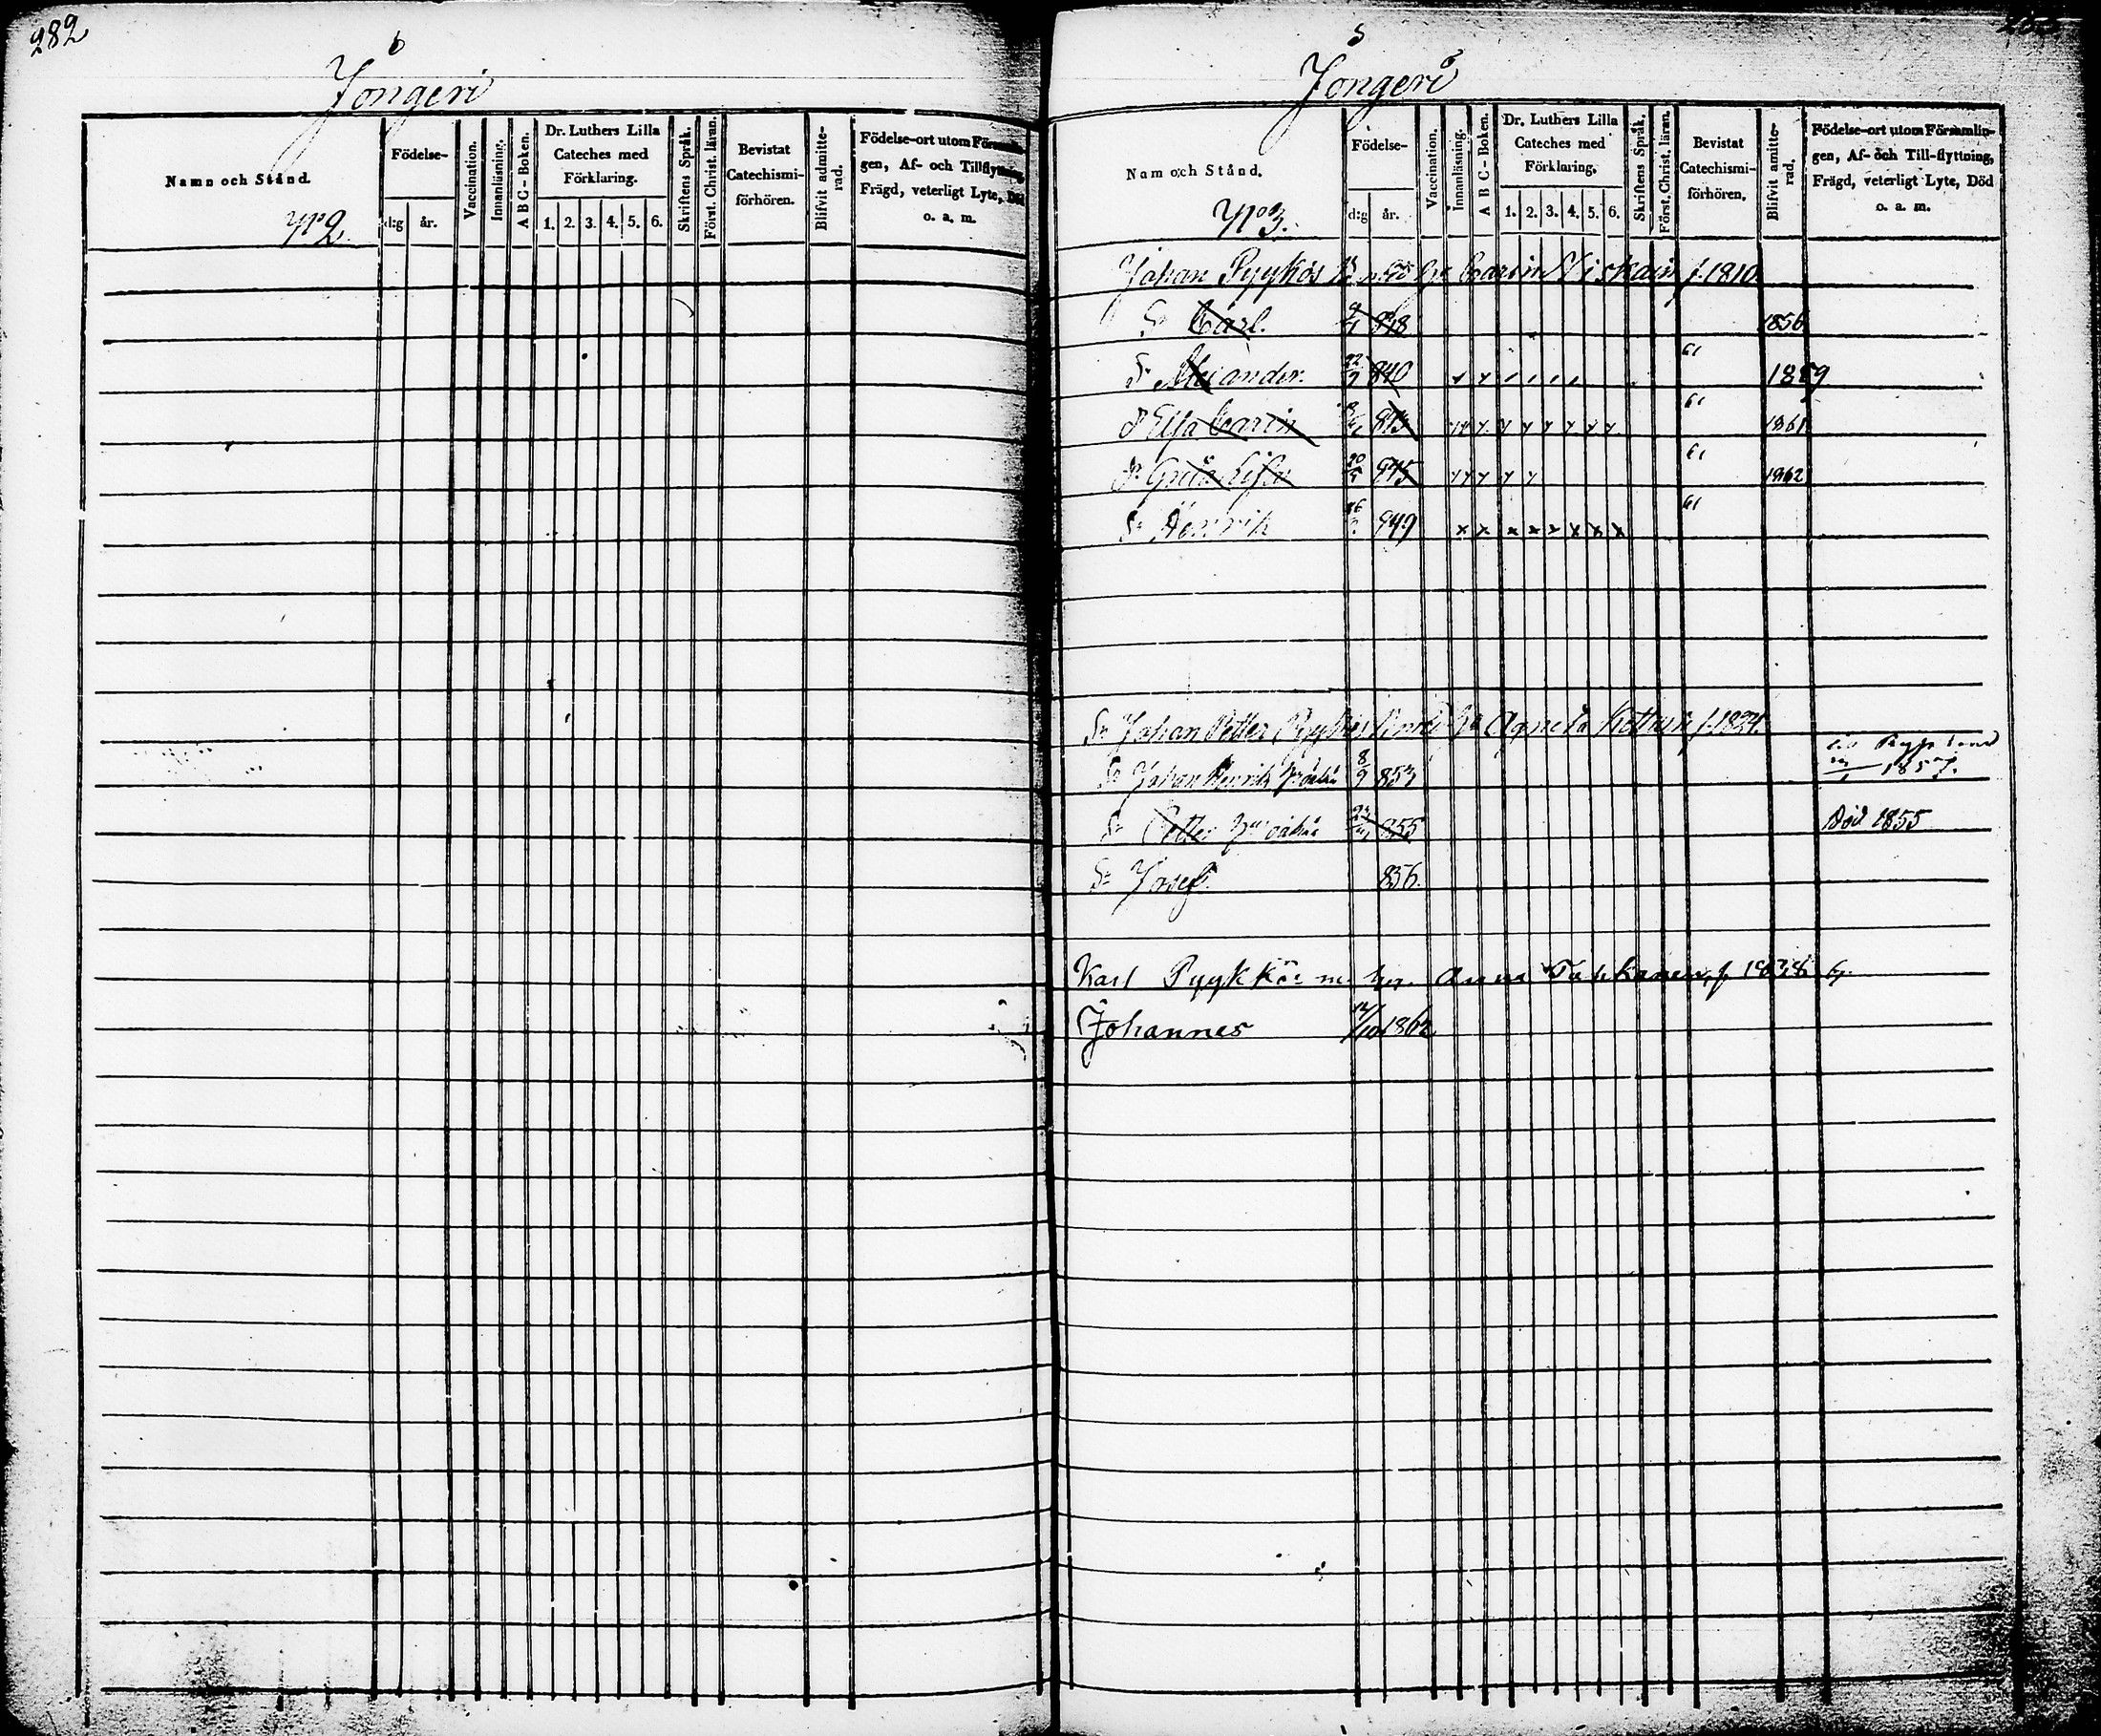 282
6
Jongeri
Namn och Stånd.
Nº 2.
Födelse-
d:g år.
Vaccination.
Innanläsning.
A B C - Boken.
Dr. Luthers Lilla
Cateches med
Förklaring.
1. 2. 3. 4. 5. 6.
Skriftens Språk.
Först. Christ. läran.
Bevistat
Catechismi-
förhören.
Blifvit admitte-
rad.
Födelse-ort utom Försam
gen, Af- och Tillflyttning,
Frägd, veterligt Lyte, Död
o. a. m.
5
Jongeri
Nam och Stånd.
Nº 3.
Födelse-
d:g år.
Vaccination.
Innanläsning.
A B C - Boken.
Dr. Luthers Lilla
Cateches med
Förklaring.
1. 2. 3. 4. 5. 6.
Skriftens Språk.
Först. Christ. lären.
Bevistat
Catechismi-
förhören.
Blifvit amitte-
rad.
Födelse-ort utom Församlin-
gen, Af- och Till-flyttning,
Frägd, veterligt Lyte, Död
o. a. m.
Johan Pyykös Carin f. 1810
Sn Carl. 1856
Sn Alexander. 22/9 840 61 1859
Dr Elsa Carin 61 1861
Dr Greta Lisa 20 845 61 1862
Sn Henrik 849 61
Sn Johan Petter Agneta f. 1824
Sn Johan Henrik 8/9 853 1857.
Sn Petter 855 Död 1855
Sn Josef 856.
Karl Pyykkö m. hu. Anna
Johannes 14/10 1862